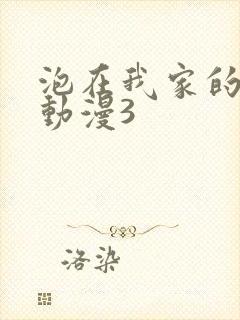 泡在我家的
動漫3
洛染